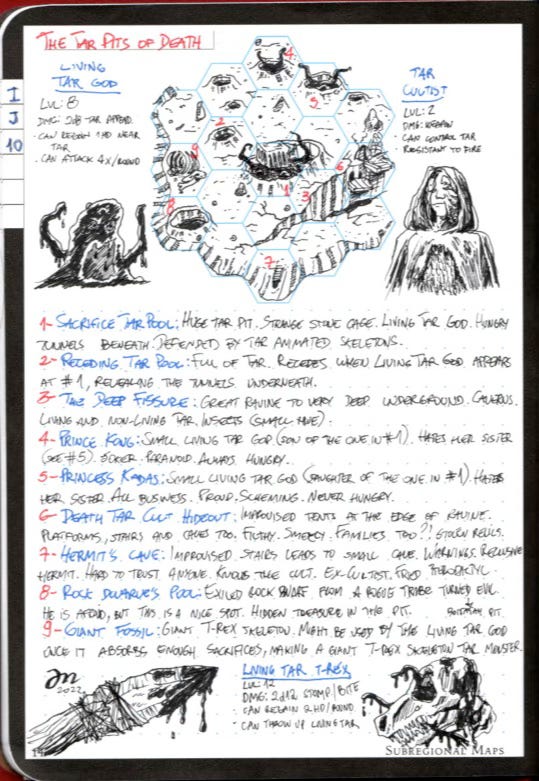 The Tar Pits of Death
Living
Tar God
LVL: 8
DMG: 2d8 Tar Append.
- Can regain 1HD near
tar
- Can attack 4x/round
Tar
Cultist
LVL: 2
DMG: Weapon
- Can control tar
- Resistant to fire
I
J
10
4
5
2
9
6
1
3
8
7
1- Sacrifice Tar Pool: Huge tar pit. Strange stone cage. Living Tar God. Hungry
tunnels beneath. Defended by tar animated skeletons.
2- Receding Tar Pool: Full of tar. Recedes when Living Tar God appears
at #1, revealing the tunnels underneath.
3- The Deep Fissure: Great ravine to very deep underground. Caverns.
Living and non-living tar. Insects (small hive).
4- Prince Kong: Small living tar god (son of the one in #1). Hates her sister
(see #5). Joker. Paranoid. Always hungry.
5- Princess Kadas: Small living tar god (daughter of the one in #1). Hates
her sister. All business. Proud. Scheming. Never hungry.
6- Death Tar Cult Hideout: Improvised tents at the edge of ravine.
Platforms, stairs and caves too. Filthy. Smelly. Families too?! Stolen relics.
7- Hermit's Cave: Improvised stairs leads to small cave. Warnings. Reclusive
hermit. Hard to trust anyone. Knows the cult. Ex-cultist. Fried pterodactyl.
8- Rock Dwarve's Pool: Exiled rock dwarf from a rogue tribe turned evil.
He is afoid, but this is a nice spot. Hidden treasure in the pit.
pit
9- Giant Fossil: Giant T-Rex skeleton. Might be used by the Living Tar God
once it absorbs enough sacrifices, making a giant T-Rex skeleton tar monster.
2022
Living Tar T-Rex
LVL: 12
DMG: 2d12 Stomp/Bite
- Can regain 2HD/round
- Can throw up living tar
Subregional Maps